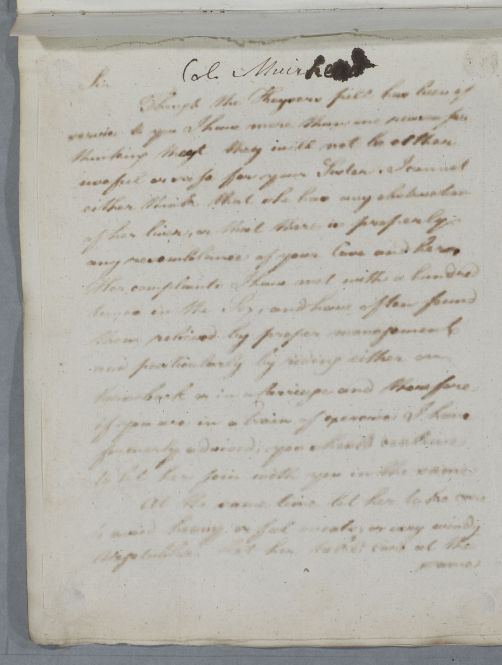 Col. Muirhead
Sr.
Though the Keysers pill has been of
service to you I have more than one reason for
thinking that they will not be either
usefull or safe for your Sister. I cannot
either think that she has any obstruction
of her liver, or that there is properly
any resemblance of your Case and hers.
Her complaints I have met with a hundred
times in the Sex, and have often found
them relieved by proper management
and particularly by riding either on
horseback or in a Carriage and therefore
if you are in a train of exercise I have
formerly advised, you should continue
to let her join with you in the same
At the same time let her take care
to avoid heavy or fat meats, or any windy
Vegetables. Let her take care at the
same